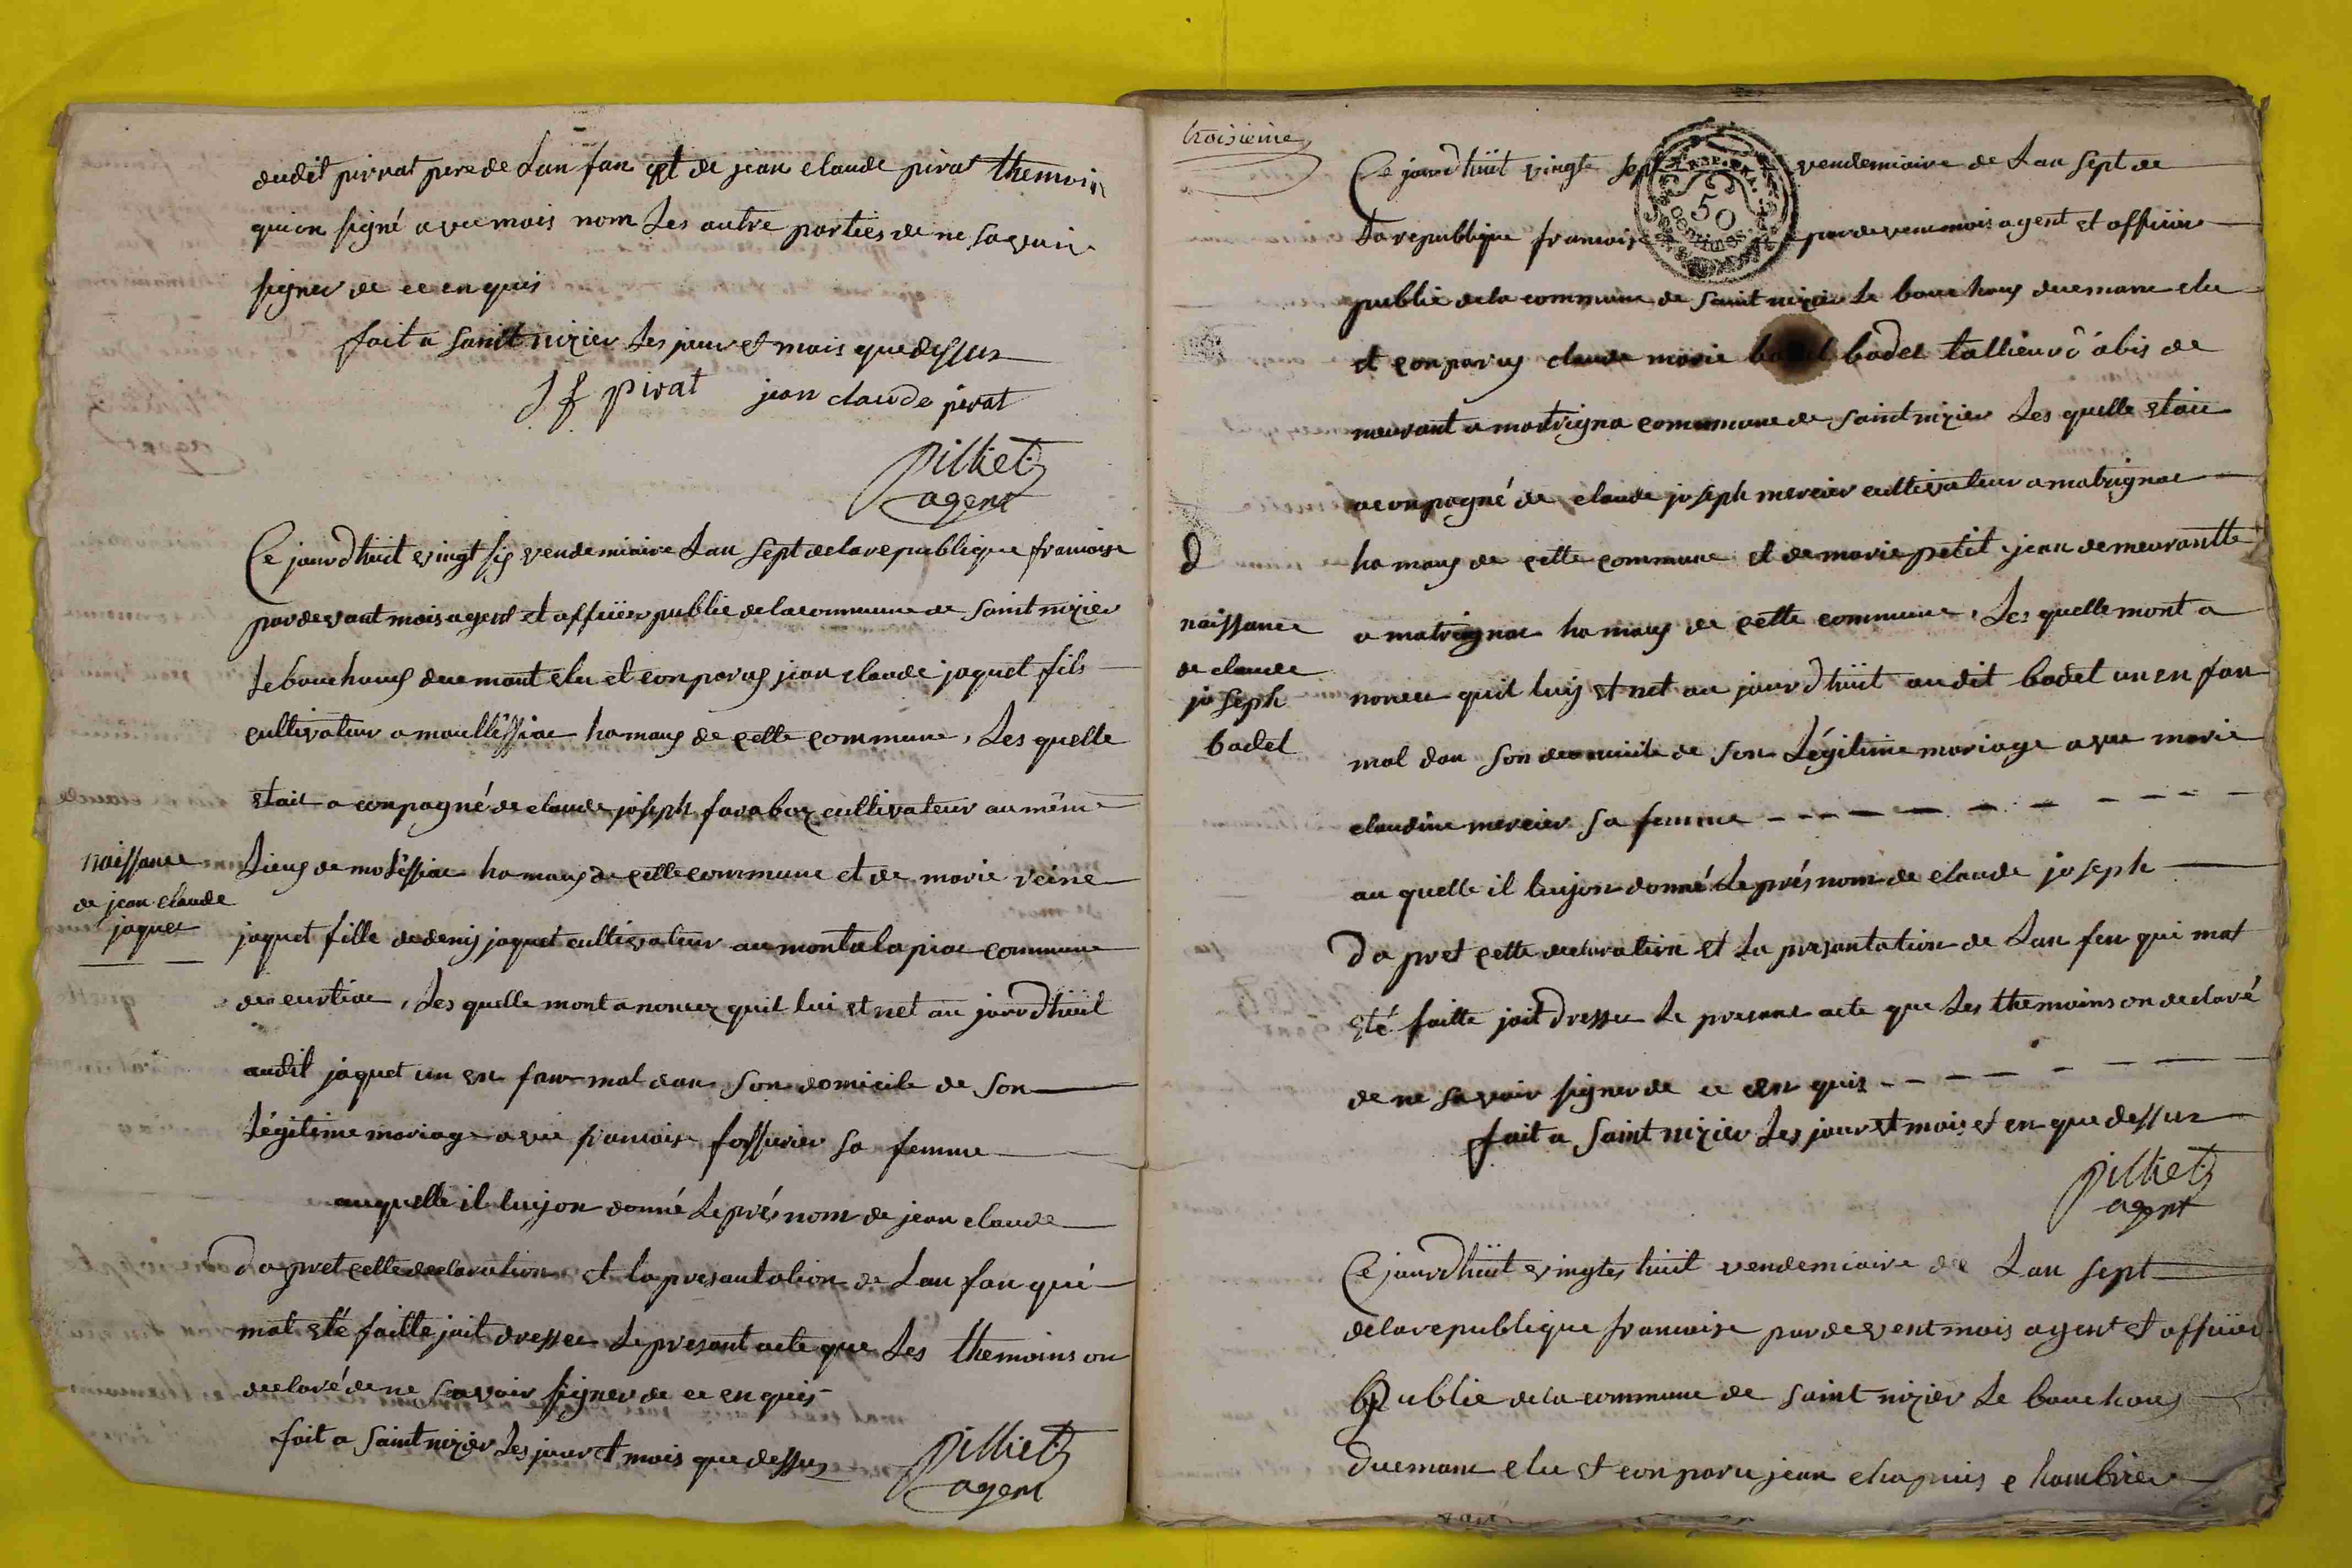 dudit pirrat pere de Lan fan et de jean claude pirat themoin
qui on signé avec mois nom Les autre parties de ne savoir
signer de ce en quis
fait a saint nizier Les jour et mois que dessus
J f pirat jean claude pirat
pilliet
agent
Ce jourdhuit vingt six vendemiaire Lan sept de la republique francoise
par devant mois agent et officier public de la commune de saint nizier
Le bouchoux duemant elu et conparus jean claude jaquet fils
cultivateur a moullissiac hamaux de cette commune, Les quelle
etait a conpagné de claude joseph favaboz cultivateur au même
Lieux de molissiac hamaux de cette commune et de marie reine
naissance
de jean claude
jaquet
jaquet fille de denis jaquet cultivateur au montalapiac commune
de curtiac, Les quelle mont anoncez quil lui et net au jourdhuit
audit jaquet un en fan mal dan son domicile de son
Légitime mariage avec francoise fossurier sa femme
auquelle il luijon donné Le prés nom de jean claude
da pret cette declaration et la presantation de Lan fan qui
mat eté faitte jait dresser Le presant acte que Les themoins on
declaré de ne savoir signer de ce en quis
fait a saint nizier Les jour et mois que dessus
pilliet
agent
troisieme
Ce jourdhuit vingte sept vendemiaire de Lan sept de
La republique francoise par devent mois agent et officier
50
centimes
public de la commune de saint nizier Le bouchoux duemant elu
et conparus claude marie badel tallieur d'abis de
meurant a matrigna commune de saint nizier Les quelle etait
aconpagné de claude joseph mercier cultivateur a matrignac
d
hamaux de cette commune et de marie petit jean demeurantte
naissance
de claude
joseph
badel
a matrignac hamaux de cette commune, Les quelle mont a
noncer quil luij et net au jourdhuit audit badel un en fan
mal dan son domicile de son Légitime mariage avec marie
claudine mercier sa femme
au quelle il luijon donné Le prés nom de claude joseph
da pret cette declaration et La presantation de Lan fen qui mat
eté faitte jait dresser Le presant acte que Les themoins on declaré
de ne savoir signer de ce en quis
fait a saint nizier Les jour et mois et en que dessus
pilliet
agent
Ce jourdhuit vingtes huit vendemiaire de Lan sept
de la republique francoise par devent mois agent et officier
publie de la commune de saint nizier Le bouchoux
duemant elu et conparu jean chapuis chambrier